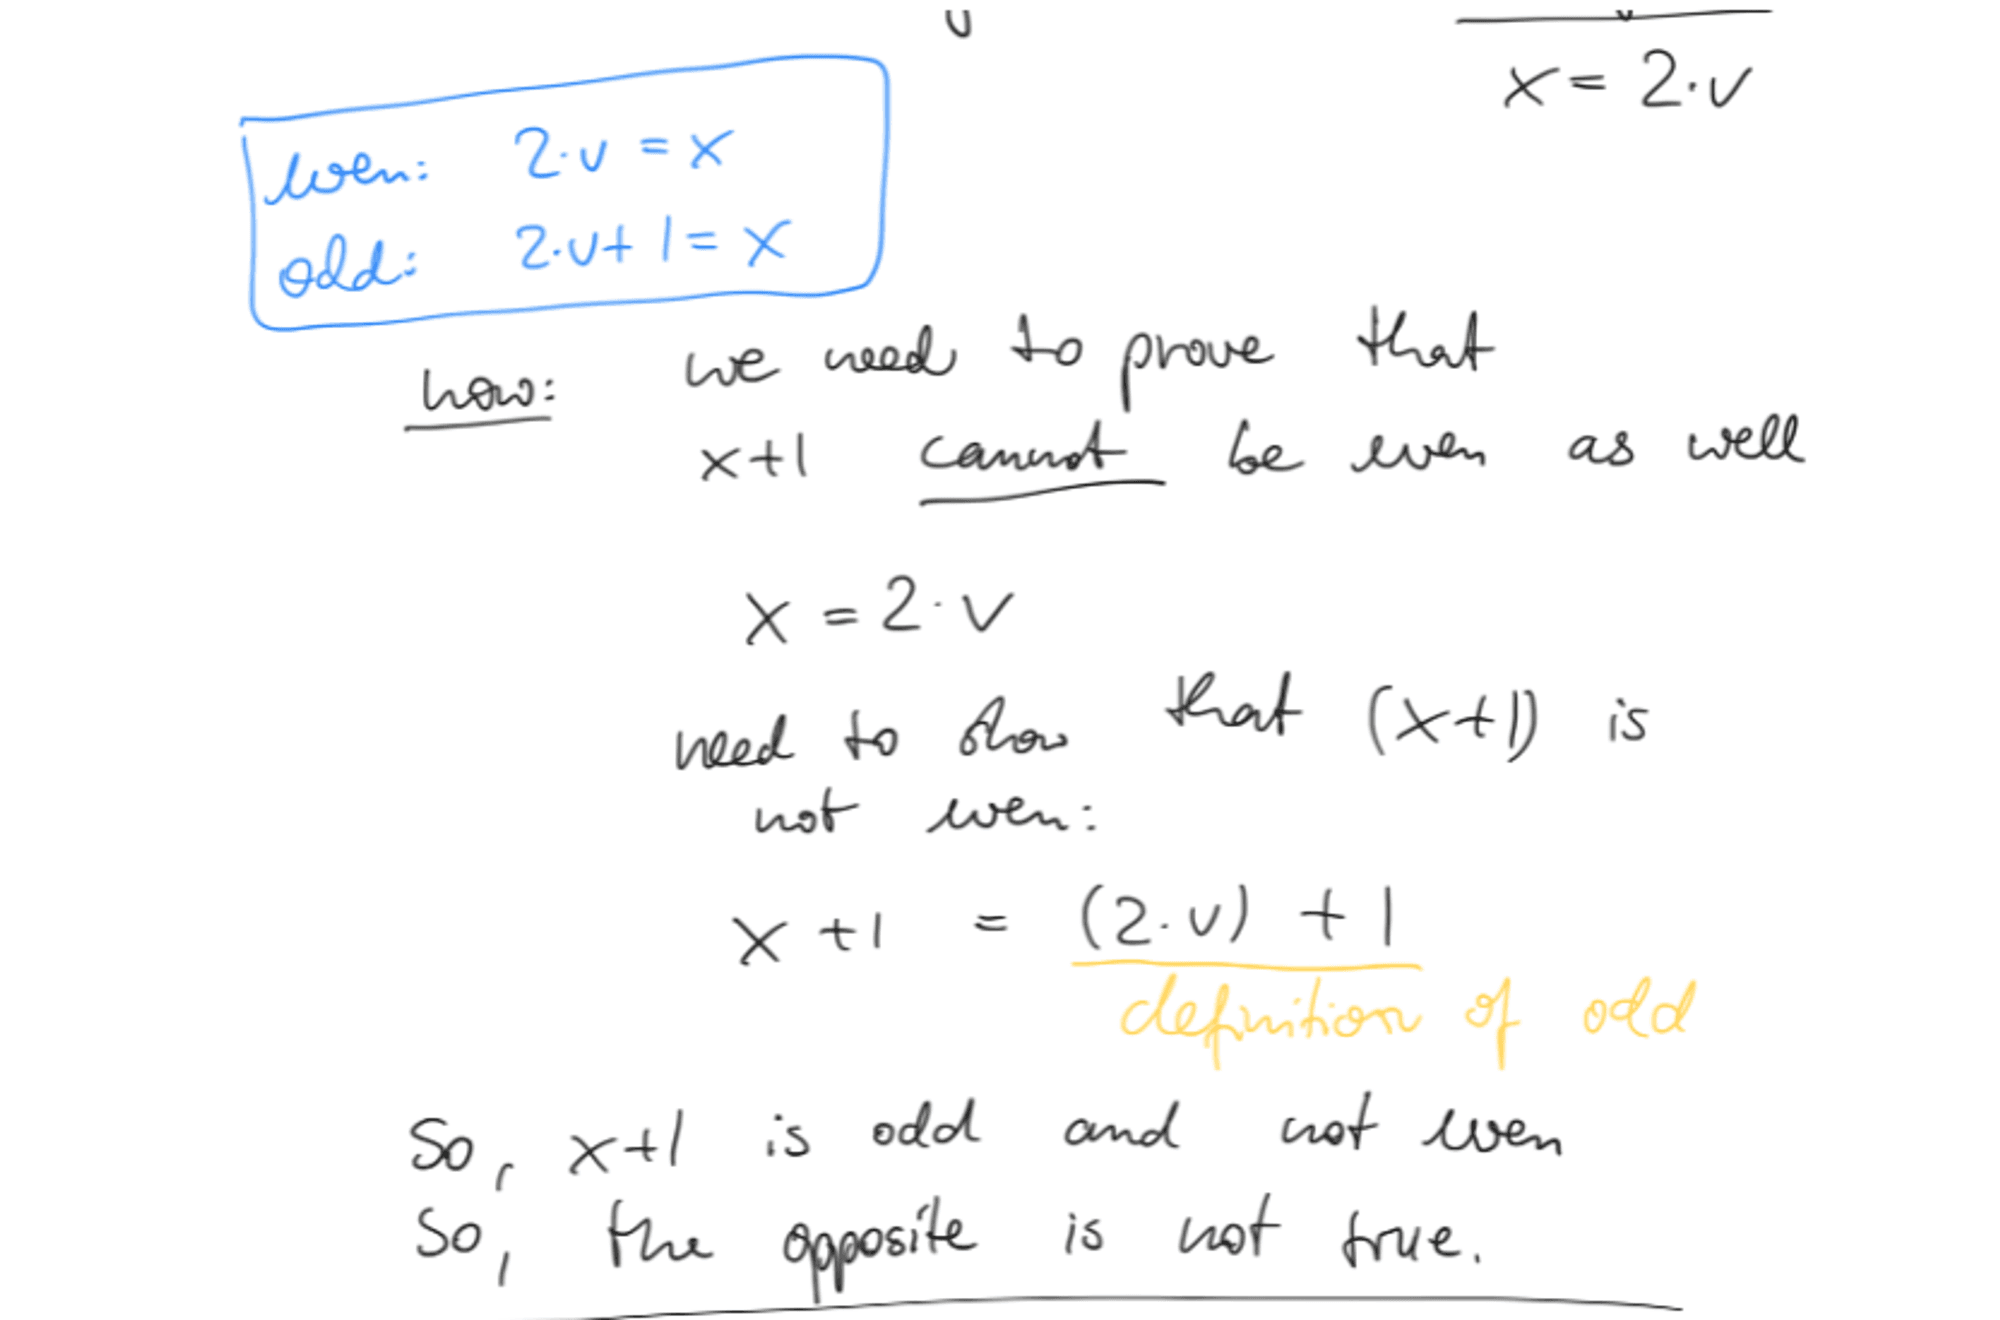 x = 2·v
even: 2·v = x
odd: 2·v+1 = x
how: we need to prove that
x+1 cannot be even as well
x = 2·v
need to show that (x+1) is
not even:
x +1 = (2·v) +1
definition of odd
So, x+1 is odd and not even
So, the opposite is not true.